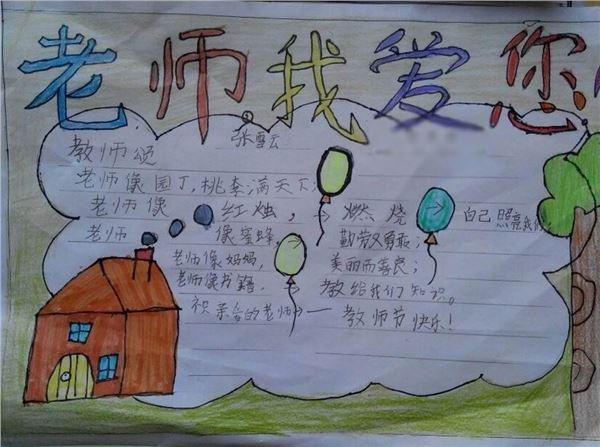 老师我爱您
张雪云
教师颂
老师像园丁,桃李满天下;
老师像红烛,燃烧自己照亮我们;
老师像蜜蜂,勤劳又勇敢;
老师像妈妈,美丽而善良;
老师像书籍,教给我们知识。
祝亲爱的老师——教师节快乐!